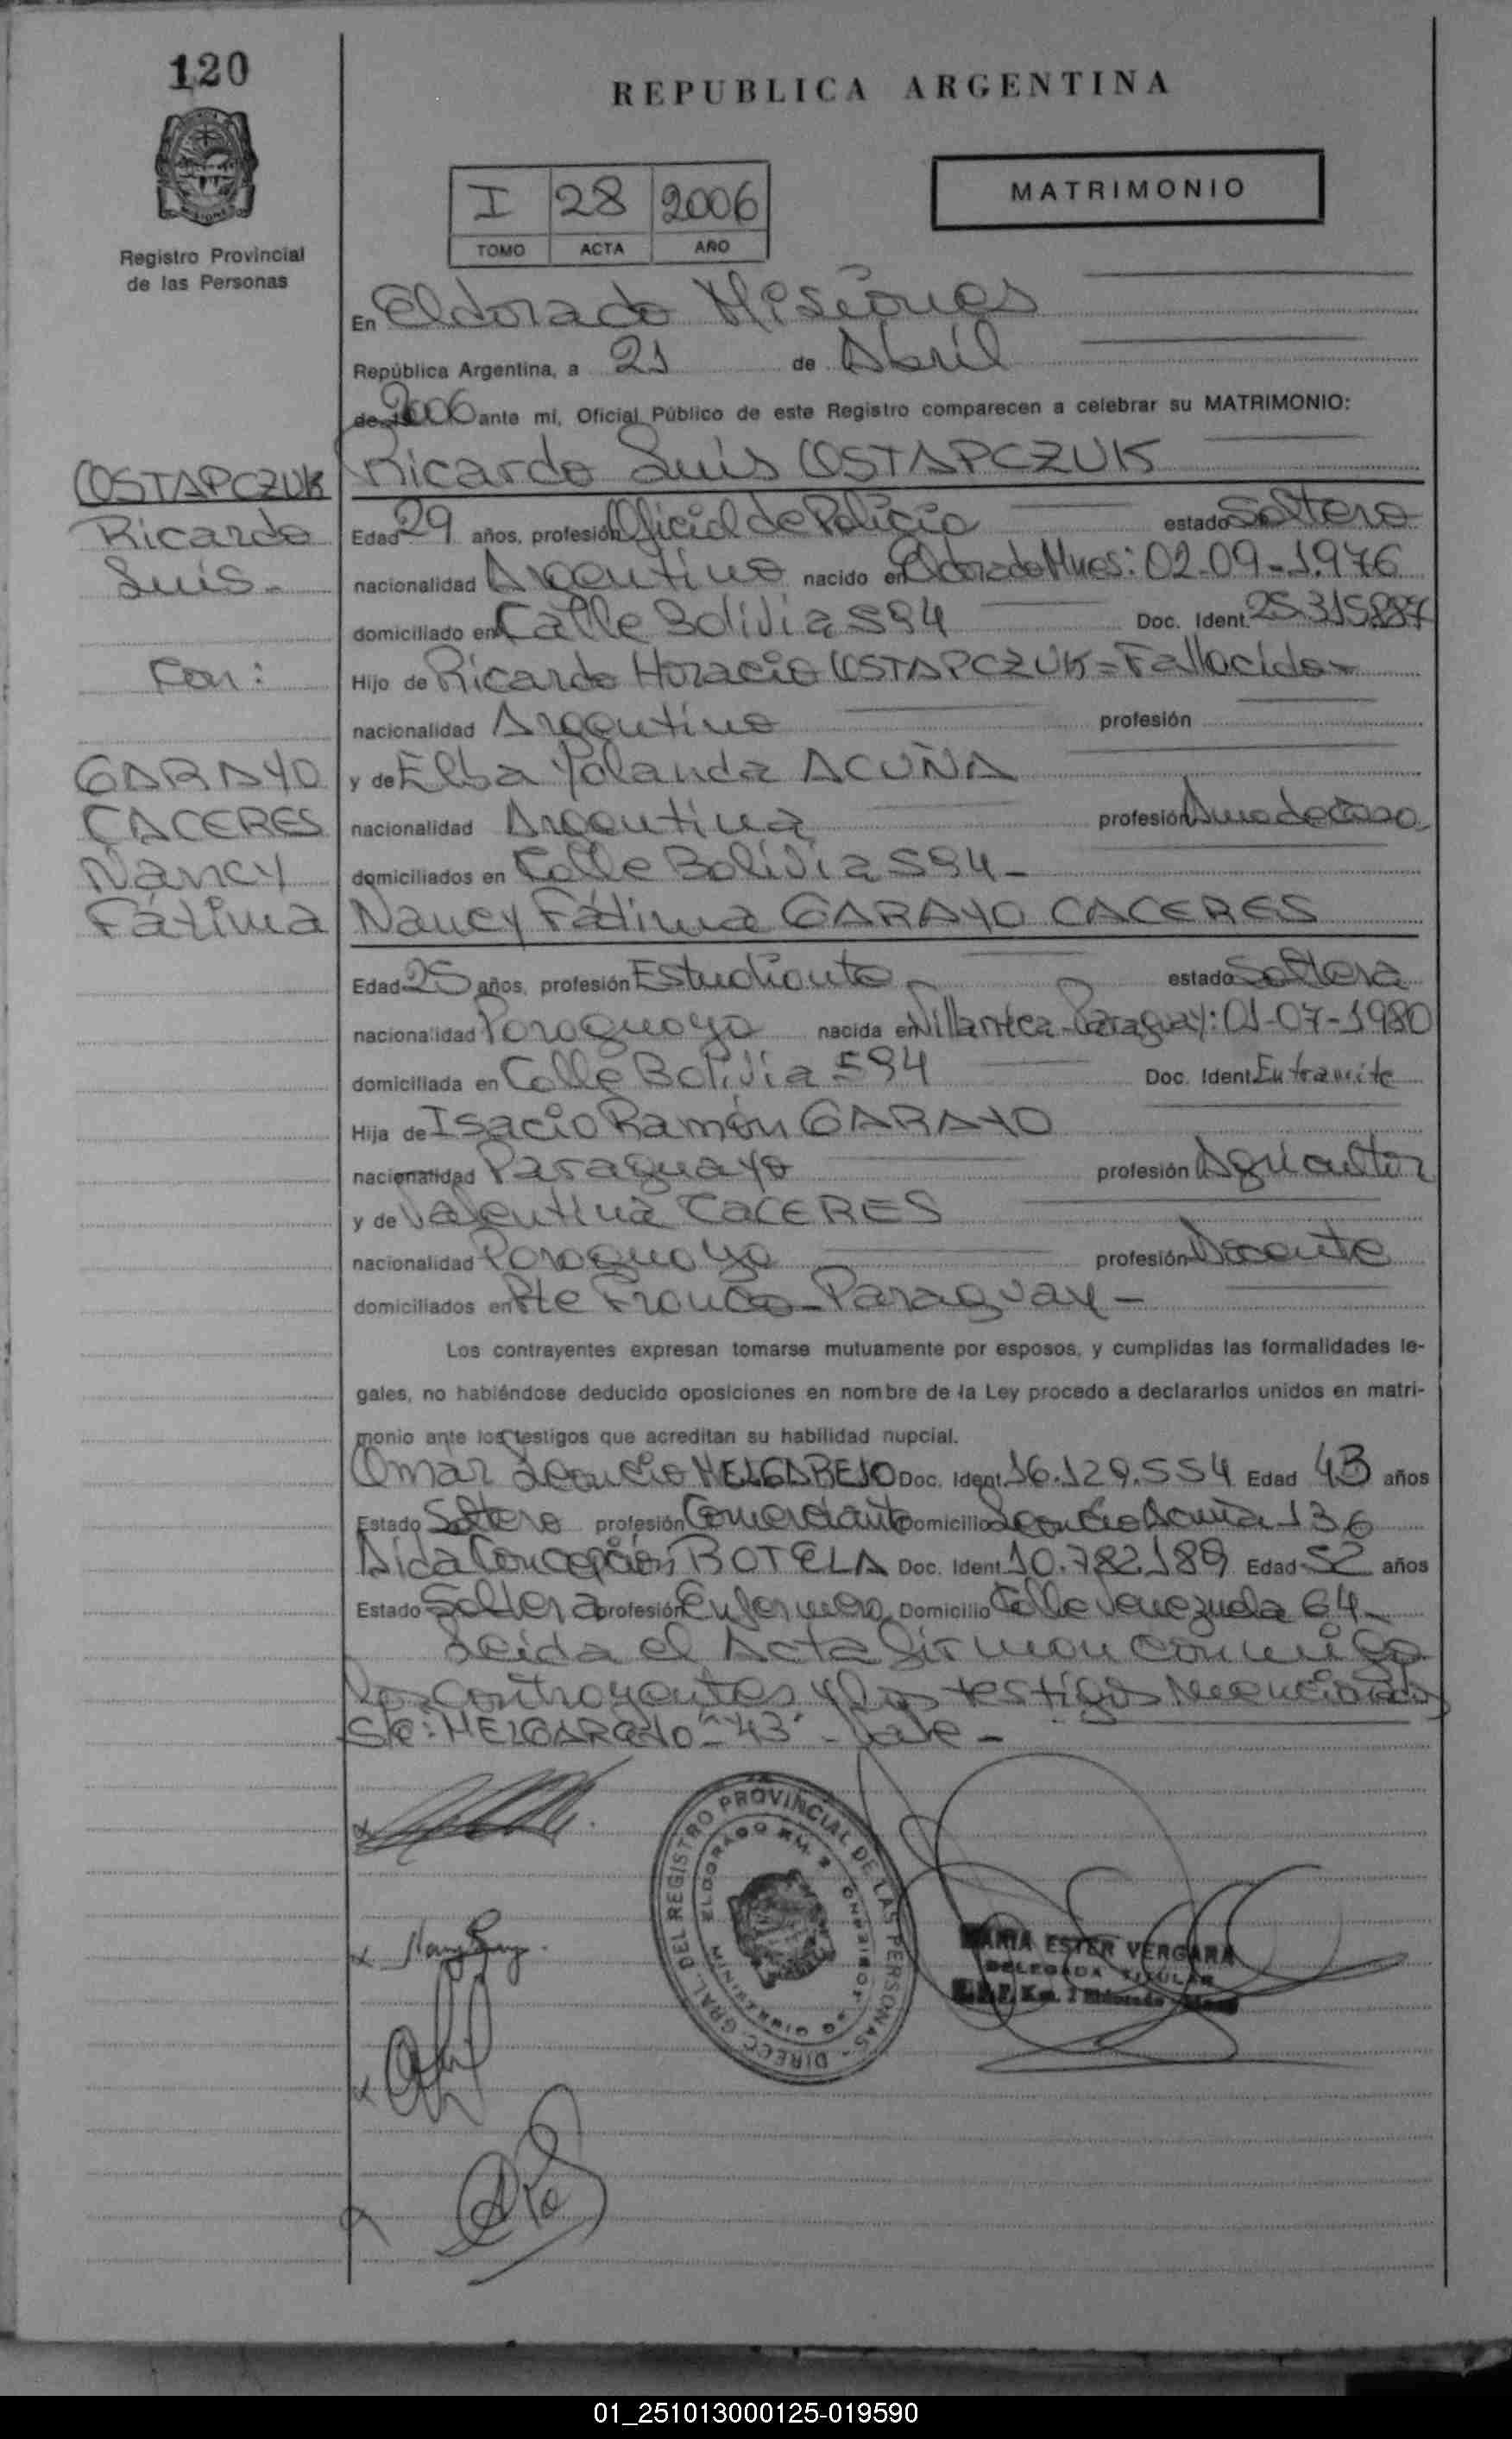 120
REPUBLICA ARGENTINA
Registro Provincial
de las Personas
I 28 2006
TOMO ACTA AÑO
MATRIMONIO
En Eldorado Misiones
República Argentina, a 21 de Abril
de 2006 ante mi, Oficial Público de este Registro comparecen a celebrar su MATRIMONIO:
COSTAPCZUK
Ricardo
Luis.-
Con:
GARAYO
CACERES
Nancy
Fátima
Ricardo Luis COSTAPCZUK
Edad 29 años, profesión Oficial de Policia estado Soltero
nacionalidad Argentino nacido en Eldorado Mnes: 02-09-1.976
domiciliado en Calle Bolivia 594 Doc. Ident. 25.315.887
Hijo de Ricardo Horacio COSTAPCZUK = Fallecido=
nacionalidad Argentino profesión
y de Elba Yolanda ACUÑA
nacionalidad Argentina profesión Ama de Casa
domiciliados en Calle Bolivia 594-
Nancy Fátima GARAYO CACERES
Edad 25 años, profesión Estudiante estado Soltera
nacionalidad Paraguaya nacida en Villarrica-Paraguay: 01-07-1980
domiciliada en Calle Bolivia 594 Doc. Ident. En tramite
Hija de Isacio Ramón GARAYO
nacionalidad Paraguayo profesión Agricultor
y de Valentina CACERES
nacionalidad Paraguaya profesión Docente
domiciliados en Pte Franco-Paraguay-
Los contrayentes expresan tomarse mutuamente por esposos, y cumplidas las formalidades le-
gales, no habiéndose deducido oposiciones en nombre de la Ley procedo a declararlos unidos en matri-
monio ante los testigos que acreditan su habilidad nupcial.
Omar Leoncio MELGAREJO Doc. Ident. 16.129.554 Edad 43 años
Estado Soltero profesión Comerciante Domicilio Leoncio Acuña 136
Aida Concepción BOTELA Doc. Ident. 10.782.189 Edad 52 años
Estado Soltera profesión Enfermera Domicilio Calle Venezuela 64-
Leida el Acta firman conmigo
los contrayentes y los testigos mencionados
S/R: MELGAREJO-"43"-Vale-
DIRECC. GRAL. DEL REGISTRO PROVINCIAL DE LAS PERSONAS
ELDORADO KM. 2
MARIA ESTER VERGARA
DELEGADA TITULAR
01_251013000125-019590